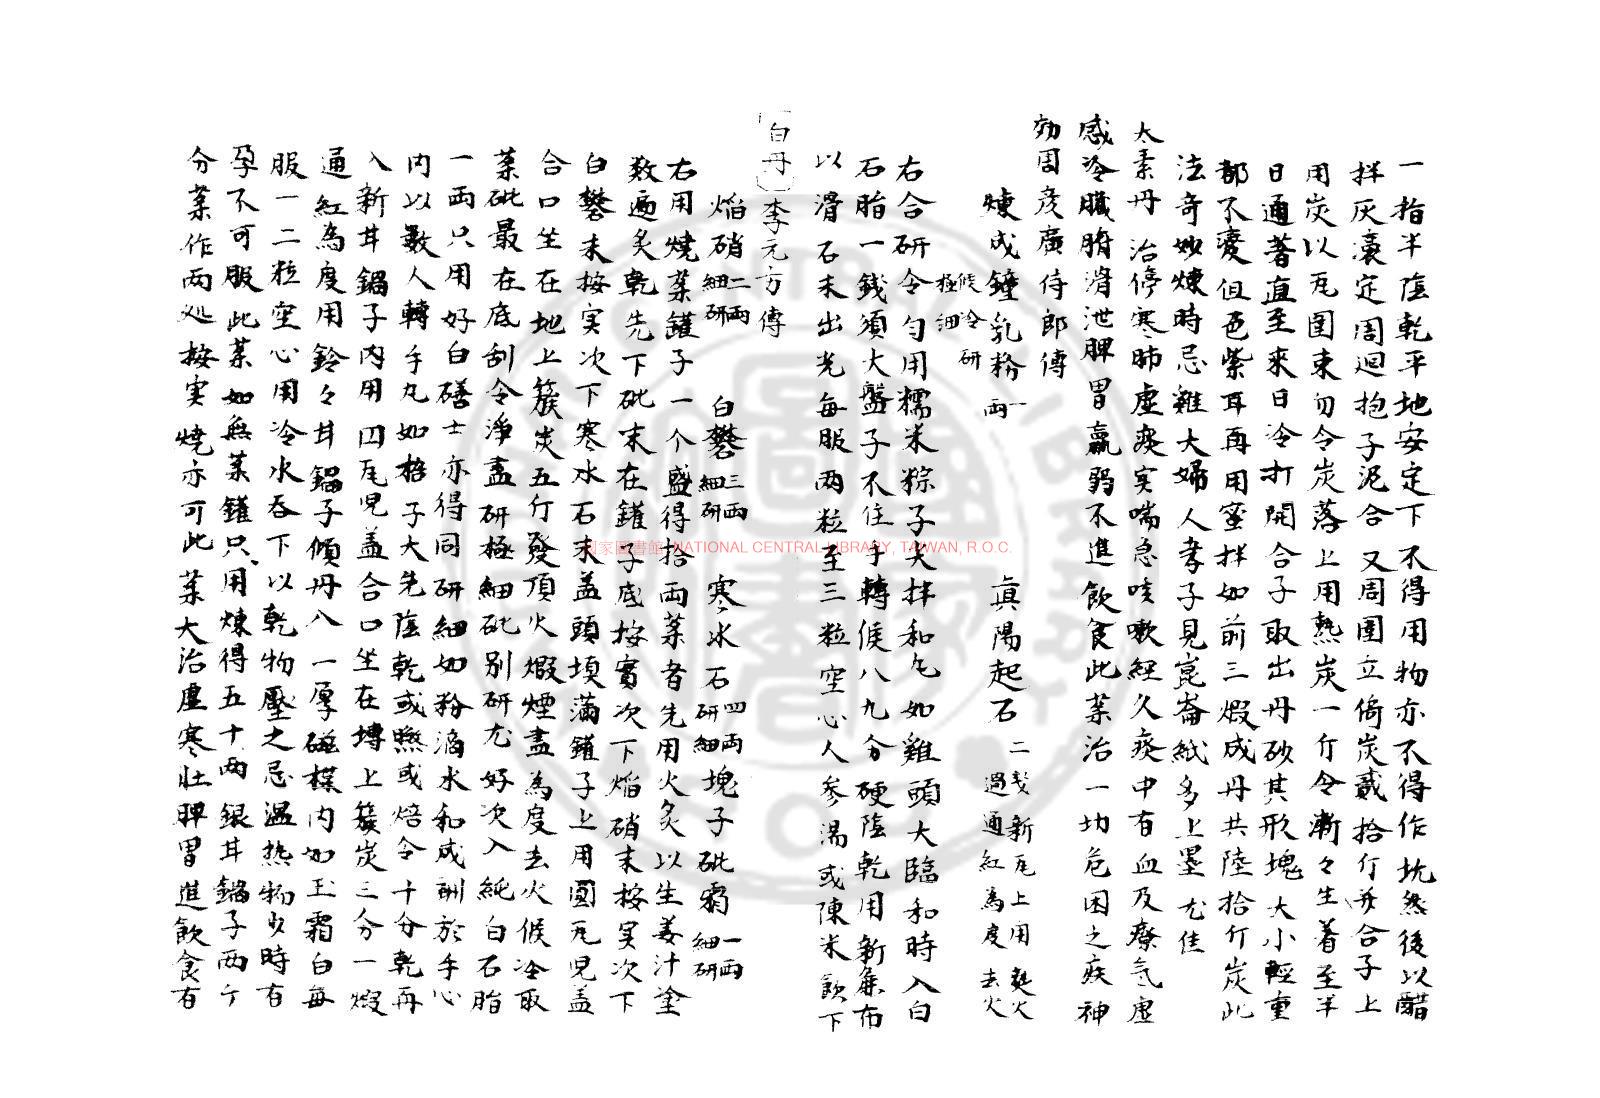 一指半蔭乾平地安定下不得用物亦不得作坑然後以醋
拌灰濃定周迴抱子泥合又周圍立倚炭貳拾斤於合子上
用炭以瓦圍東勿令炭落上用熱炭一斤令漸々生着至半
日通著直至來日冷打開合子取出丹砂其形塊大小輕重
都不變但色紫耳再用蜜拌如前三煆成丹共陸拾斤炭此
法奇妙煉時忌雞犬婦人孝子見崑崙紙多上墨尤佳
太素丹治停寒肺虛痰实喘急咳嗽經久痰中有血及療氣虛
感冷臓腑滑泄脾胃羸弱不進飲食此藥治一切危困之疾神
効周彦廣侍郎傳
煉成鐘乳粉一両 真陽起石二戔新瓦上用熟火過通紅為度去火候冷研極細
右合研令勻用糯米粽子尖拌和匀如雞頭大臨和時入白
石脂一錢須大盤子不住手轉候八九分硬蔭乾用新麁布
以滑石末出光每服两粒至三粒空心人参湯或陳米飲下
白丹 李元方傳
焰硝二两細研 白礬三両細研 寒水石四两研細 塊子砒霜一两細研
右用燒藥鑵子一个盛得拾两藥者先用火炙以生姜汁塗
数遍炙乾先下砒末在鑵子底按實次下焰硝末按実次下
白礬末按实次下寒水石末盖頭填滿鑵子上用圓瓦児盖
合口坐在地上簇炭五斤發頂火煆煙盡為度去火候冷取
藥砒最在底刮令淨盡研極細砒別研尤好次入純白石脂
一两只用好白磰土亦得同研細如粉滴水和成劑於手心
内以數人轉手丸如梧子大先蔭乾或㬠或焙令十分乾再
入新甘鍋子内用四瓦児盖合口坐在塼上簇炭三分一煆
通紅為度用鈴々甘鍋子傾丹入一厚磁楪内如玉霜白每
服一二粒空心用冷水吞下以乾物壓之忌温热物少時有
孕不可服此藥如無藥鑵只用煉得五十两銀甘鍋子两个
分藥作两处按实燒亦可此藥大治虛寒壮脾胃進飲食有